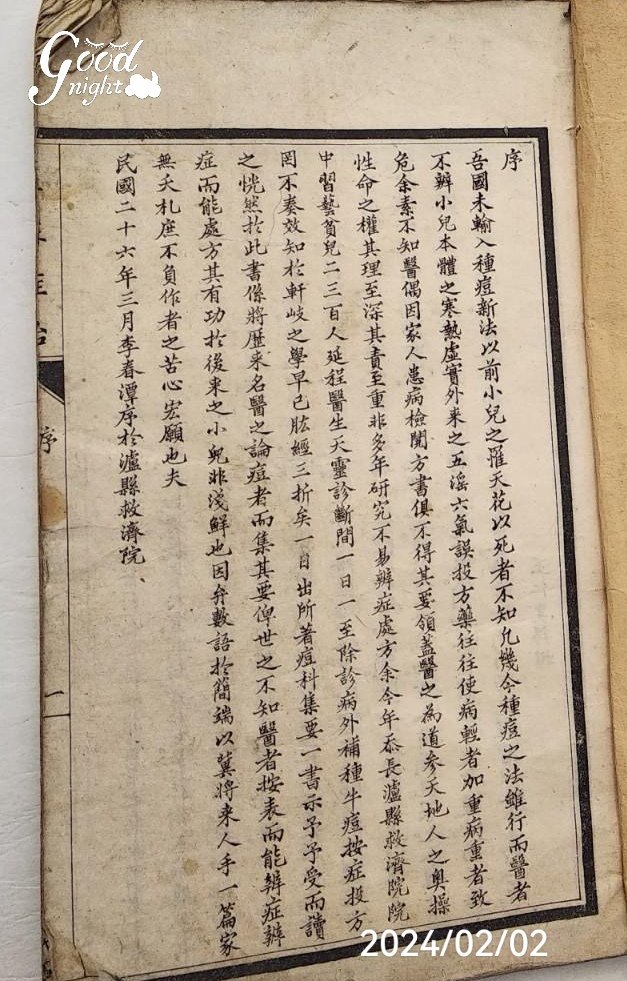 Good
night
序
吾國未輸入種痘新法以前小兒之罹天花以死者不知凡幾今種痘之法雖行而醫者
不辨小兒本體之寒熱虛實外來之五滛六氣誤投方藥往往使病輕者加重病重者致
危余素不知醫偶因家人患病檢閱方書俱不得其要領蓋醫之為道參天地人之奧操
性命之權其理至深其責至重非多年研究不易辨症處方余今年忝長瀘縣救濟院院
中習藝貧兒二三百人延程醫生天靈診斷間一日一至除診病外補種牛痘按症投方
罔不奏效知於軒岐之學早已肱經三折矣一日出所著痘科集要一書示予予受而讀
之恍然於此書係將歷來名醫之論痘者而集其要俾世之不知醫者按表而能辨症辨
症而能處方其有功於後來之小兒非淺鮮也因弁數語於簡端以冀將來人手一篇家
無夭札庶不負作者之苦心宏願也夫
民國二十六年三月李春潭序於瀘縣救濟院、
序
一
2024/02/02